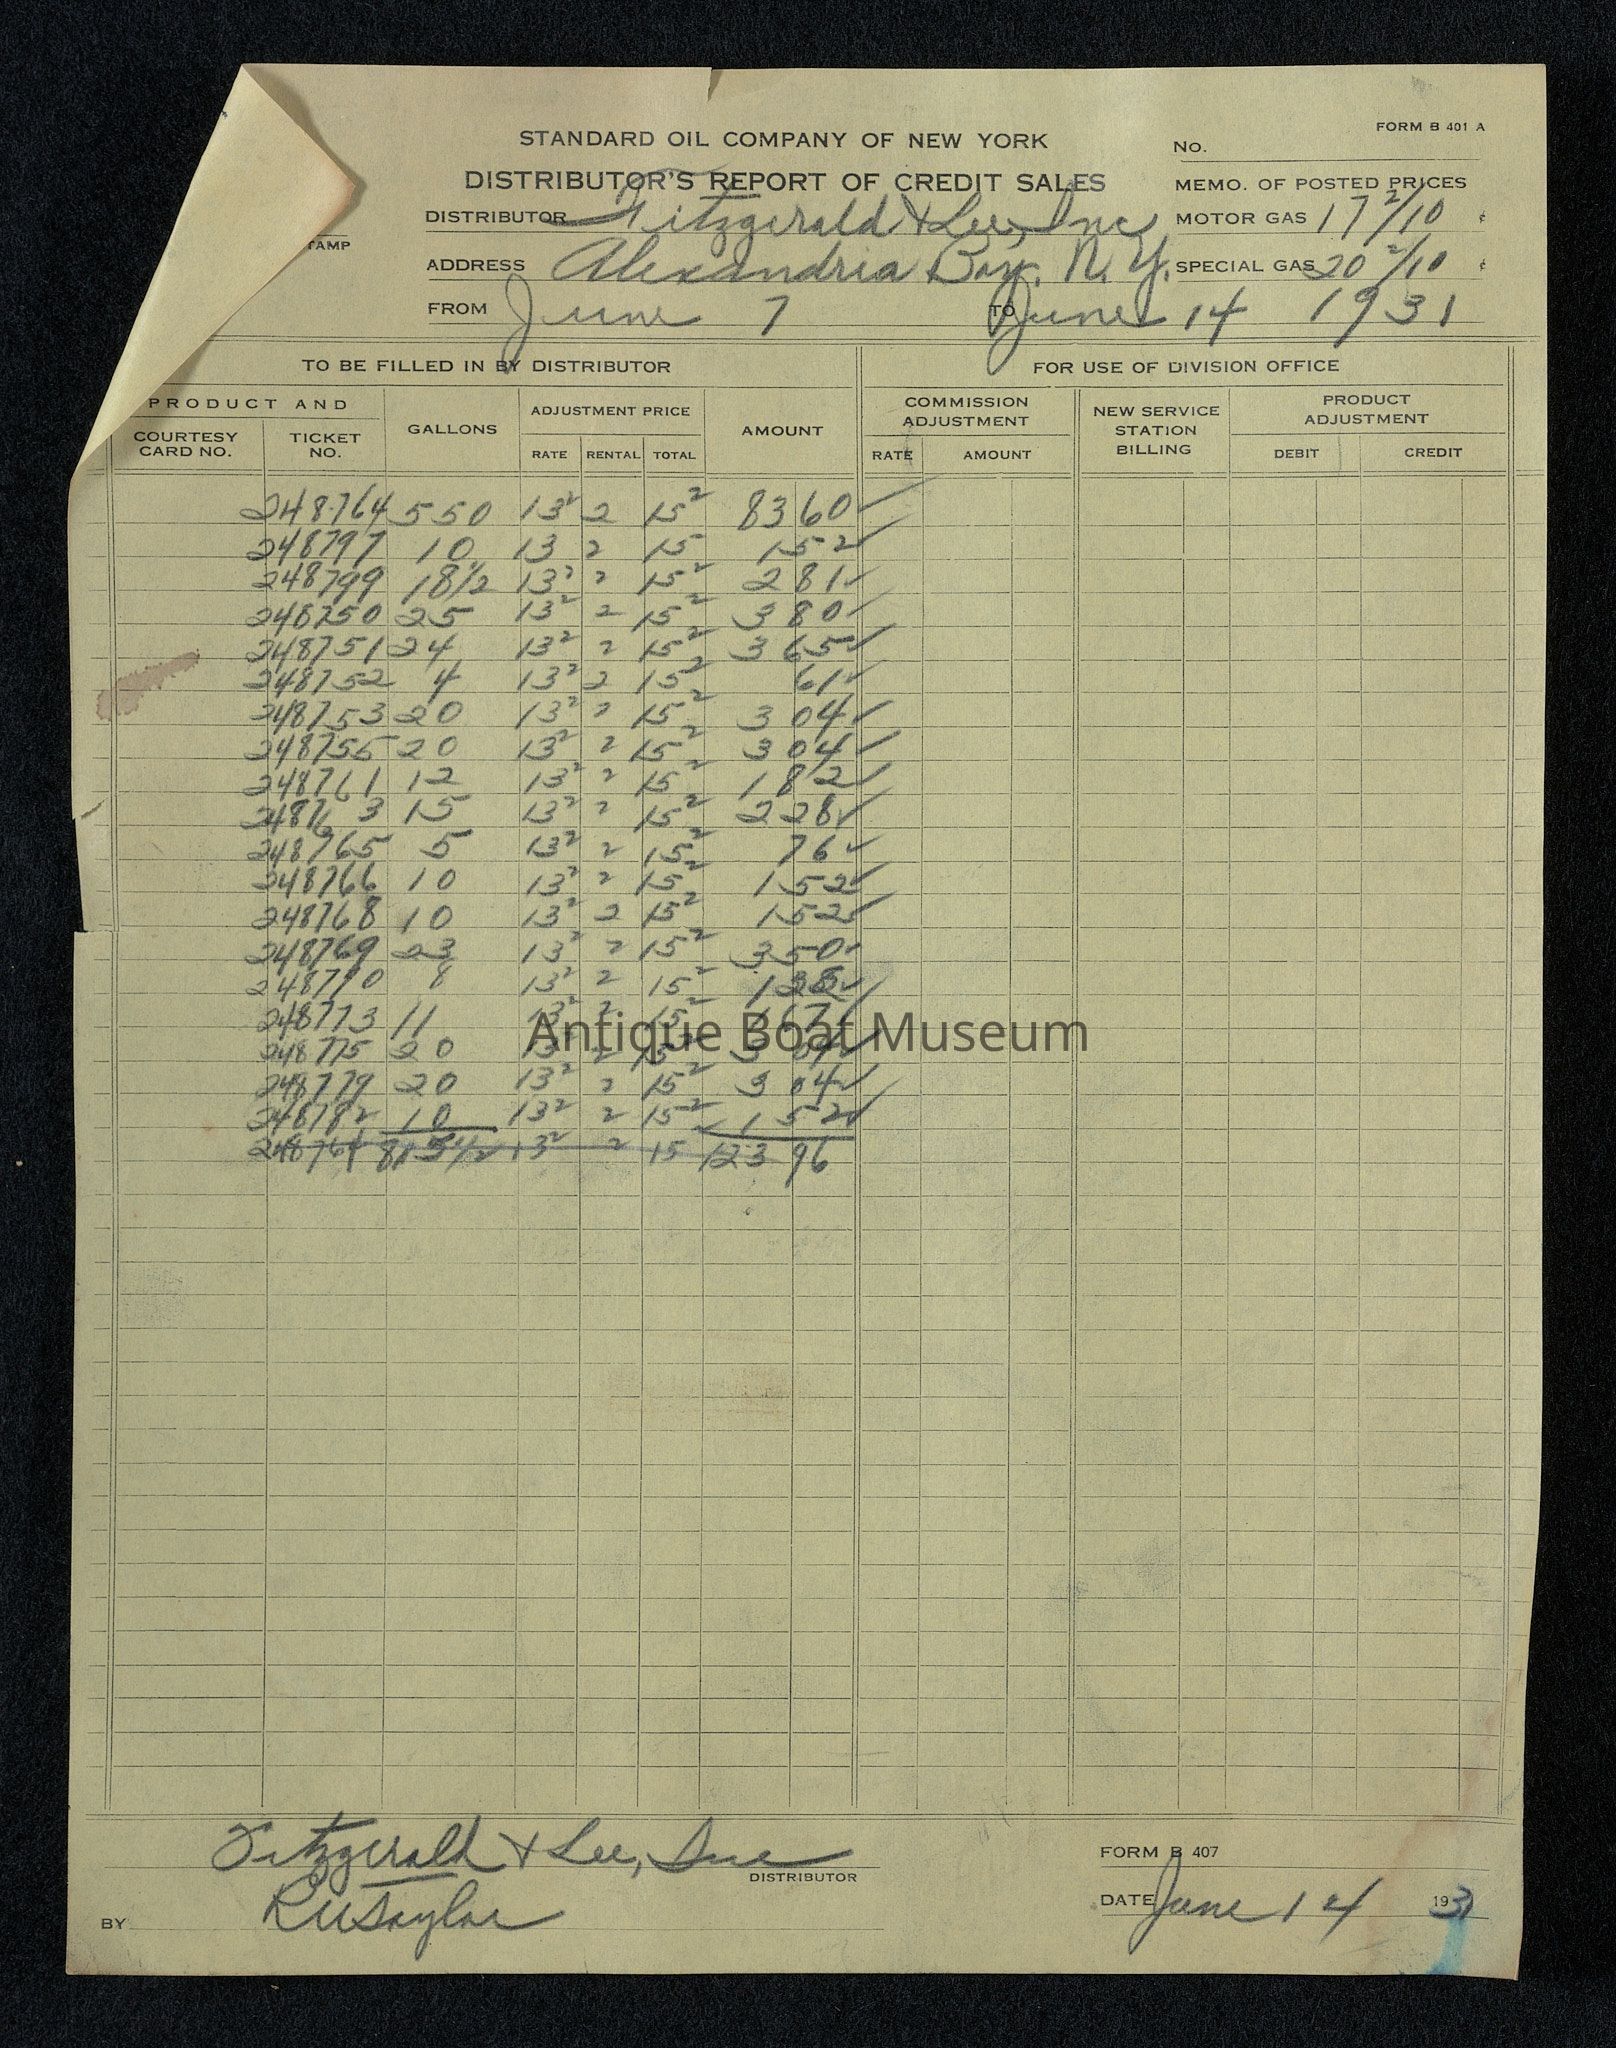 FORM B 401 A
STANDARD OIL COMPANY OF NEW YORK
No.
DISTRIBUTOR'S REPORT OF CREDIT SALES
MEMO. OF POSTED PRICES
DISTRIBUTOR Fitzgerald & Lee, Inc
MOTOR GAS 17 2/10 ¢
TAMP
ADDRESS Alexandria Bay, N.Y.
SPECIAL GAS 20 2/10 ¢
FROM June 7 TO June 14 1931
TO BE FILLED IN BY DISTRIBUTOR FOR USE OF DIVISION OFFICE
PRODUCT AND GALLONS ADJUSTMENT PRICE AMOUNT COMMISSION ADJUSTMENT NEW SERVICE STATION BILLING PRODUCT ADJUSTMENT
COURTESY CARD NO. TICKET NO. RATE RENTAL TOTAL RATE AMOUNT DEBIT CREDIT
248764 550 13² 2 15² 83 60 ✓
248797 10 13 2 15 1 52 ✓
248799 18½ 13² 2 15² 2 81 ✓
248750 25 13² 2 15² 3 80 ✓
248751 24 13² 2 15² 3 65 ✓
248752 4 13² 2 15² 61 ✓
248753 20 13² 2 15² 3 04 ✓
248755 20 13² 2 15² 3 04 ✓
248761 12 13² 2 15² 1 82 ✓
248763 15 13² 2 15² 2 28 ✓
248765 5 13² 2 15² 76 ✓
248766 10 13² 2 15² 1 52 ✓
248768 10 13² 2 15² 1 52 ✓
248769 23 13² 2 15² 3 50 ✓
248770 8 13² 2 15² 1 22 ✓
248773 11 13² 2 15² 1 67 ✓
248775 20 13² 2 15² 3 04 ✓
248779 20 13² 2 15² 3 04 ✓
248782 10 13² 2 15² 1 52 ✓
248764 815½ 13² 2 15 123 96
Antique Boat Museum
Fitzgerald & Lee, Inc
DISTRIBUTOR
FORM B 407
BY
DATE June 14 1931